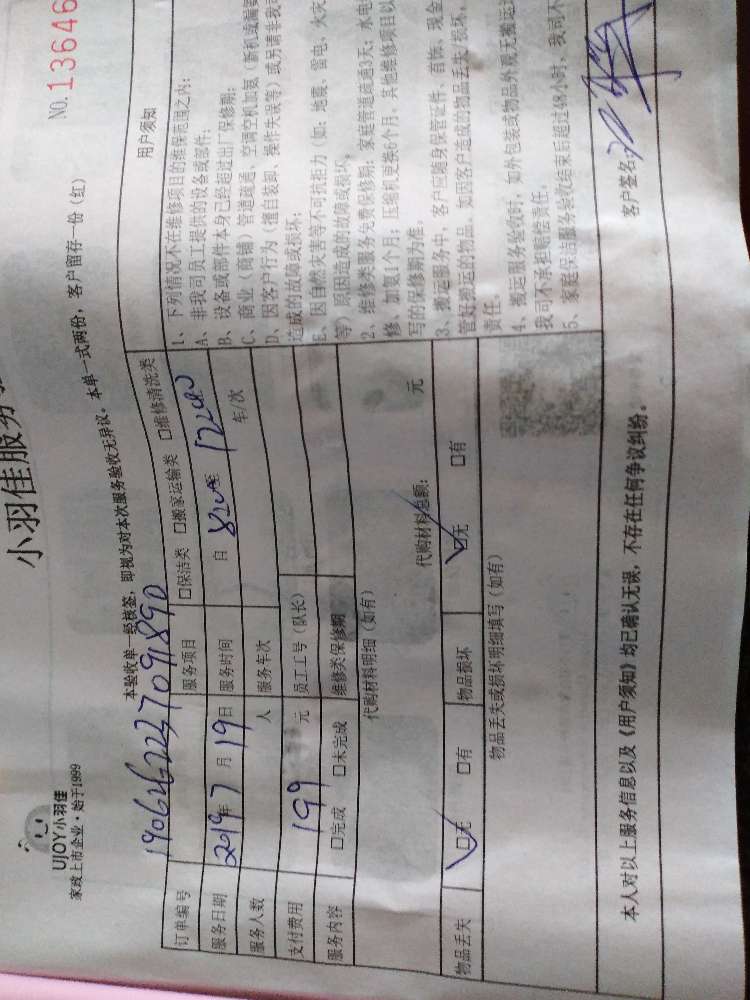 小羽佳服务
UJOY小羽佳
家政上市企业·始于1999
NO.13646
本验收单一经核签，即视为对本次服务验收无异议。本单一式两份，客户留存一份（红）
订单编号 190626223709 1890 服务项目 □保洁类 □搬家运输类 □维修清洗类
服务日期 2019年7月19日 服务时间 自 8200至 12200
服务人数 人 服务车次 车/次
支付费用 199 元 员工工号（队长）
服务内容 □完成 □未完成 维修类保修期
代购材料明细（如有）
代购材料总额： 元
物品丢失 □无 □有 物品损坏 □无 □有
物品丢失或损坏明细填写（如有）
用户须知
1、下列情况不在维修项目的维保范围之内：
A、非我司员工提供的设备或部件；
B、设备或部件本身已经超过出厂保修期；
C、商业（商铺）管道疏通、空调空机加氨（新机或漏
D、因客户行为（擅自装卸、操作失误等）或另请非我
造成的故障或损坏；
E、因自然灾害等不可抗拒力（如：地震、雷电、火灾
等）原因造成的故障或损坏。
2、维修类服务免费保修期：家庭管道疏通3天；水电
修、加氨1个月；压缩机更换6个月，其他维修项目以
写的保修期为准。
3、搬运服务中，客户应随身保管证件、首饰、现金
管好搬运的物品，如因客户造成的物品丢失/损坏，
责任。
4、搬运服务验收时，如外包装或物品外观无搬运
我司不承担赔偿责任。
5、家庭保洁服务验收结束后超过48小时，我司不
本人对以上服务信息以及《用户须知》均已确认无误，不存在任何争议纠纷。
客户签名：